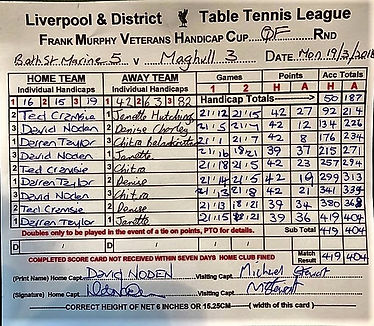 Liverpool & District Table Tennis League
FRANK MURPHY VETERANS HANDICAP CUP QF RND
Bath St Marine 5 v Maghull 3 DATE Mon 19/3/2018
HOME TEAM AWAY TEAM Games Points Acc Totals
Individual Handicaps Individual Handicaps 1 2 H A H A
1 16 2 15 3 19 1 42 2 63 3 82 Handicap Totals 50 187
2 Ted Crimsie 1 Janette Hutchings 21/12 21/15 42 27 92 214
3 David Noden 2 Denise Chorley 42 12 134 226
1 Derren Taylor 3 Chitra 42 8 176 234
3 David Noden 1 Janette 39 37 215 271
2 Ted Crimsie 3 Chitra 42 23 257 294
1 Derren Taylor 2 Denise 42 19 299 313
3 David Noden 3 Chitra 42 21 341 334
2 Ted Crimsie 2 Denise 21/13 18/21 39 34 380 368
1 Derren Taylor 1 Janette 21/15 18/21 39 36 419 404
Doubles only to be played in the event of a tie on points, PTO for details. Sub Total 419 404
D / D /
COMPLETED SCORE CARD NOT RECEIVED WITHIN SEVEN DAYS HOME CLUB FINED Match Result 419 404
(Print Name) Home Capt. David NODEN Visiting Capt. Michael Stewart
(Signature) Home Capt. Visiting Capt. M Stewart
CORRECT HEIGHT OF NET 6 INCHES OR 15.25CM (width of this card)